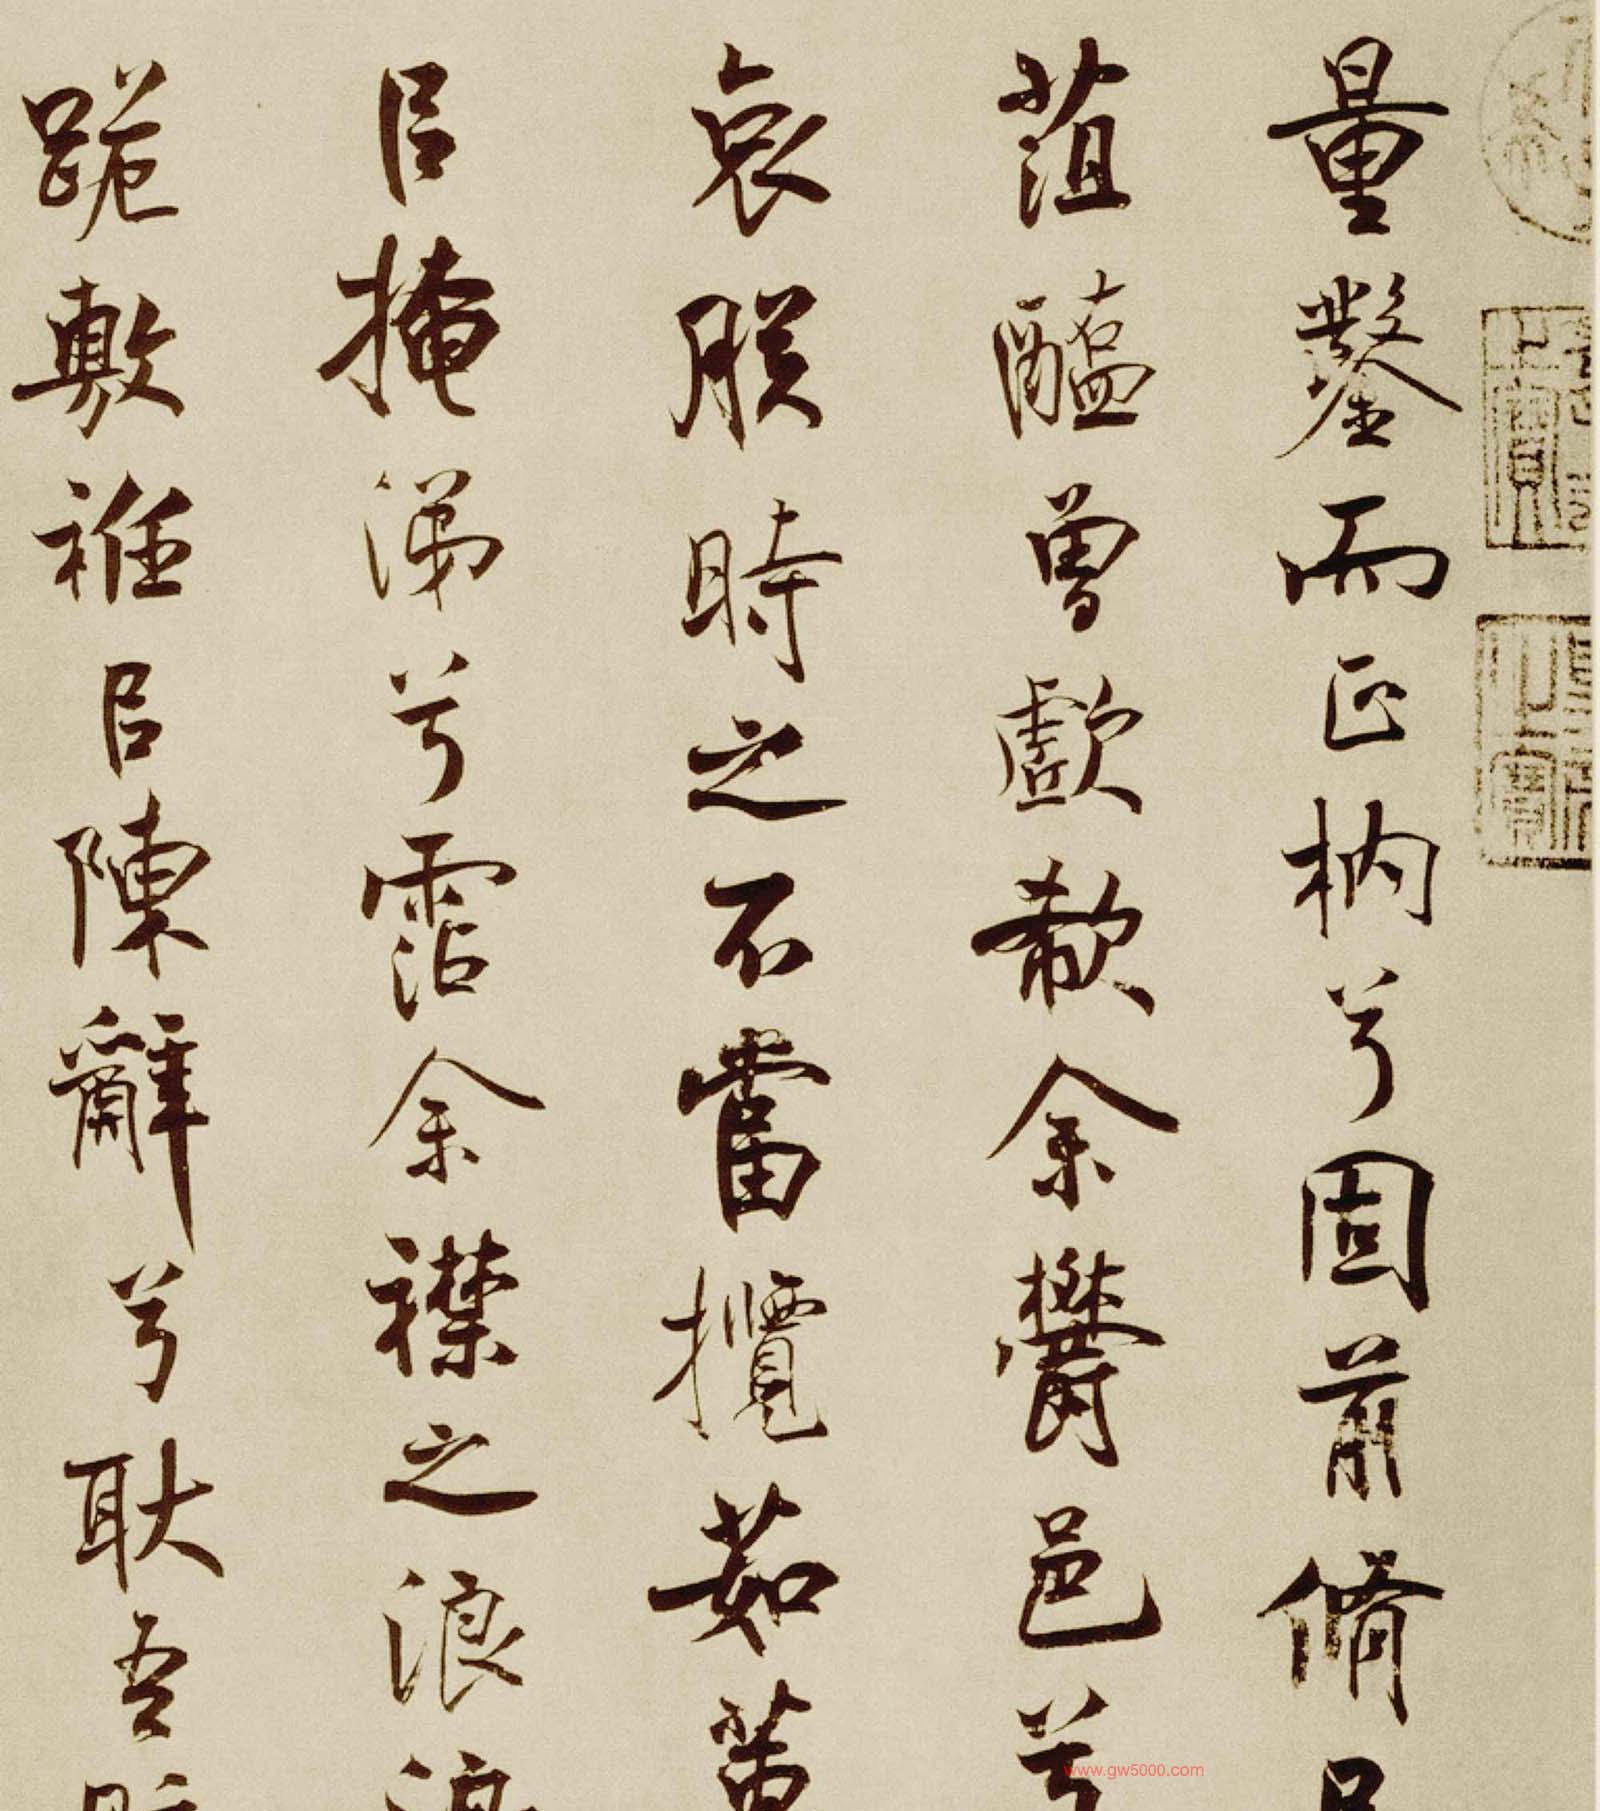 量鑿而正枘兮固前脩㠯
菹醢曾歔欷余鬱邑兮
哀朕時之不當攬茹蕙
㠯掩涕兮霑余襟之浪浪
跪敷衽㠯陳辭兮耿吾
www.gw5000.com